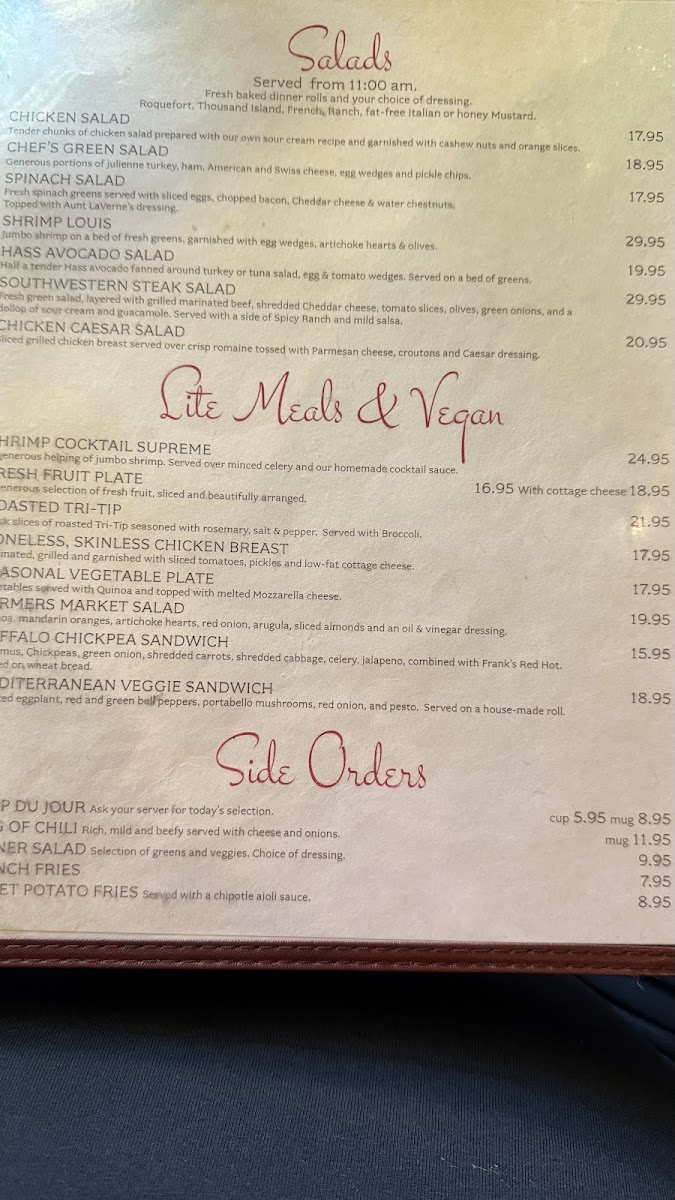 Salads
Served from 11:00 am.
Fresh baked dinner rolls and your choice of dressing.
Roquefort, Thousand Island, French, Ranch, fat-free Italian or honey Mustard.
CHICKEN SALAD 17.95
Tender chunks of chicken salad prepared with our own sour cream recipe and garnished with cashew nuts and orange slices.
CHEF'S GREEN SALAD 18.95
Generous portions of julienne turkey, ham, American and Swiss cheese, egg wedges and pickle chips.
SPINACH SALAD 17.95
Fresh spinach greens served with sliced eggs, chopped bacon, Cheddar cheese & water chestnuts.
Topped with Aunt LaVerne's dressing.
SHRIMP LOUIS 29.95
Jumbo shrimp on a bed of fresh greens, garnished with egg wedges, artichoke hearts & olives.
HASS AVOCADO SALAD 19.95
Half a tender Hass avocado fanned around turkey or tuna salad, egg & tomato wedges. Served on a bed of greens.
SOUTHWESTERN STEAK SALAD 29.95
Fresh green salad, layered with grilled marinated beef, shredded Cheddar cheese, tomato slices, olives, green onions, and a
dollop of sour cream and guacamole. Served with a side of Spicy Ranch and mild salsa.
CHICKEN CAESAR SALAD 20.95
Sliced grilled chicken breast served over crisp romaine tossed with Parmesan cheese, croutons and Caesar dressing.
Lite Meals & Vegan
HRIMP COCKTAIL SUPREME 24.95
generous helping of jumbo shrimp. Served over minced celery and our homemade cocktail sauce.
RESH FRUIT PLATE 16.95 With cottage cheese 18.95
enerous selection of fresh fruit, sliced and beautifully arranged.
OASTED TRI-TIP 21.95
ck slices of roasted Tri-Tip seasoned with rosemary, salt & pepper. Served with Broccoli.
ONELESS, SKINLESS CHICKEN BREAST 17.95
inated, grilled and garnished with sliced tomatoes, pickles and low-fat cottage cheese.
ASONAL VEGETABLE PLATE 17.95
etables served with Quinoa and topped with melted Mozzarella cheese.
RMERS MARKET SALAD 19.95
oa, mandarin oranges, artichoke hearts, red onion, arugula, sliced almonds and an oil & vinegar dressing.
FFALO CHICKPEA SANDWICH 15.95
mus, Chickpeas, green onion, shredded carrots, shredded cabbage, celery, jalapeno, combined with Frank's Red Hot.
ed on wheat bread.
DITERRANEAN VEGGIE SANDWICH 18.95
ed eggplant, red and green bell peppers, portabello mushrooms, red onion, and pesto. Served on a house-made roll.
Side Orders
P DU JOUR Ask your server for today's selection. cup 5.95 mug 8.95
G OF CHILI Rich, mild and beefy served with cheese and onions. mug 11.95
NER SALAD Selection of greens and veggies. Choice of dressing. 9.95
NCH FRIES 7.95
ET POTATO FRIES Served with a chipotle aioli sauce. 8.95